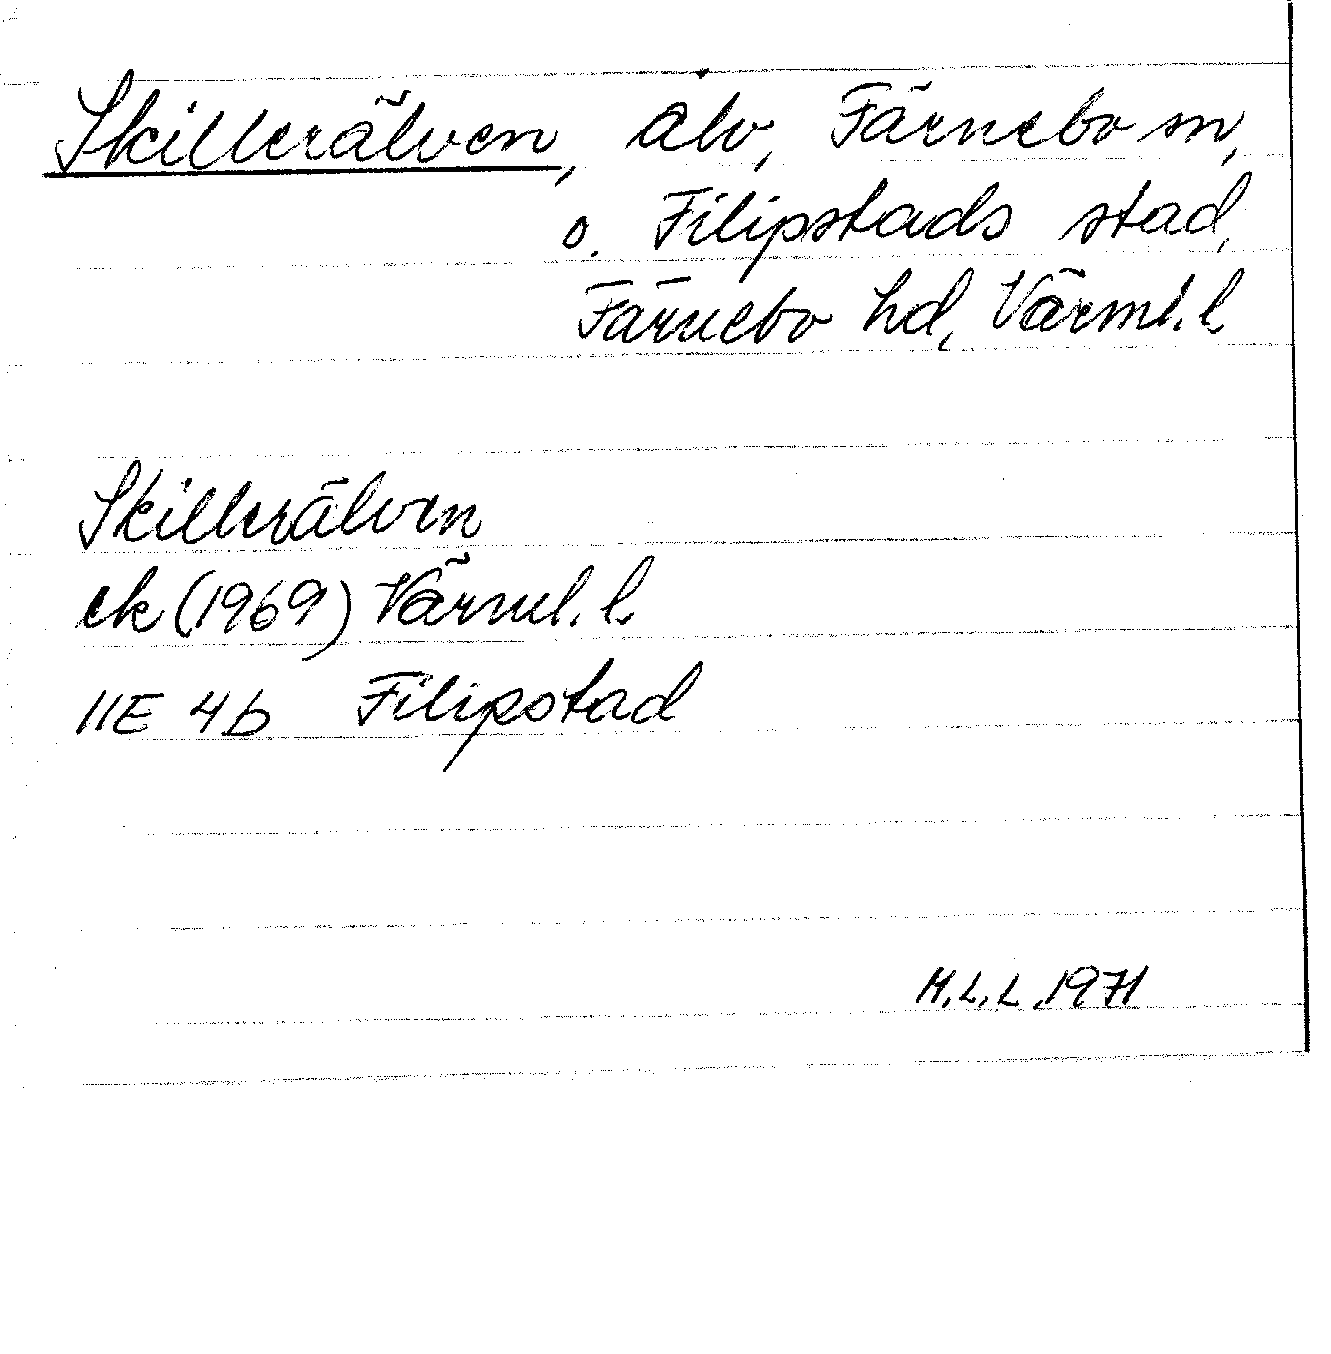 Skillerälven, älv, Färnebo sn,
o. Filipstads stad,
Färnebo hd, Värml. l.
Skillerälven
ek (1969) Värml. l.
11E 4b Filipstad
M.L.L. 1971